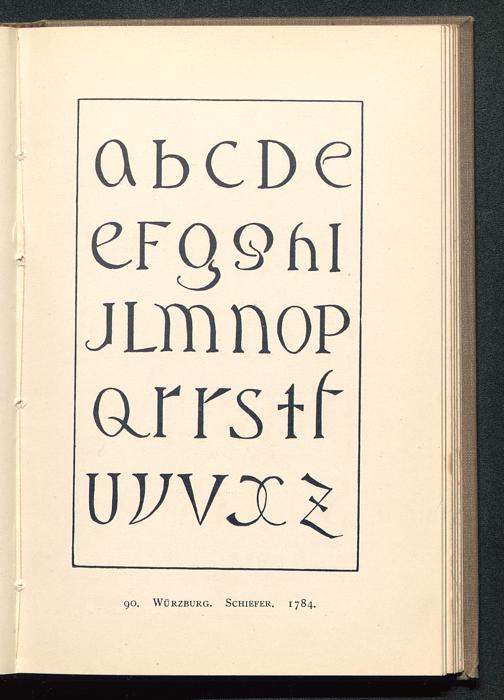 a b c D e
e F g g h I
J L m n O P
Q r r s t t
U V V X Z
90. WÜRZBURG. SCHIEFER. 1784.